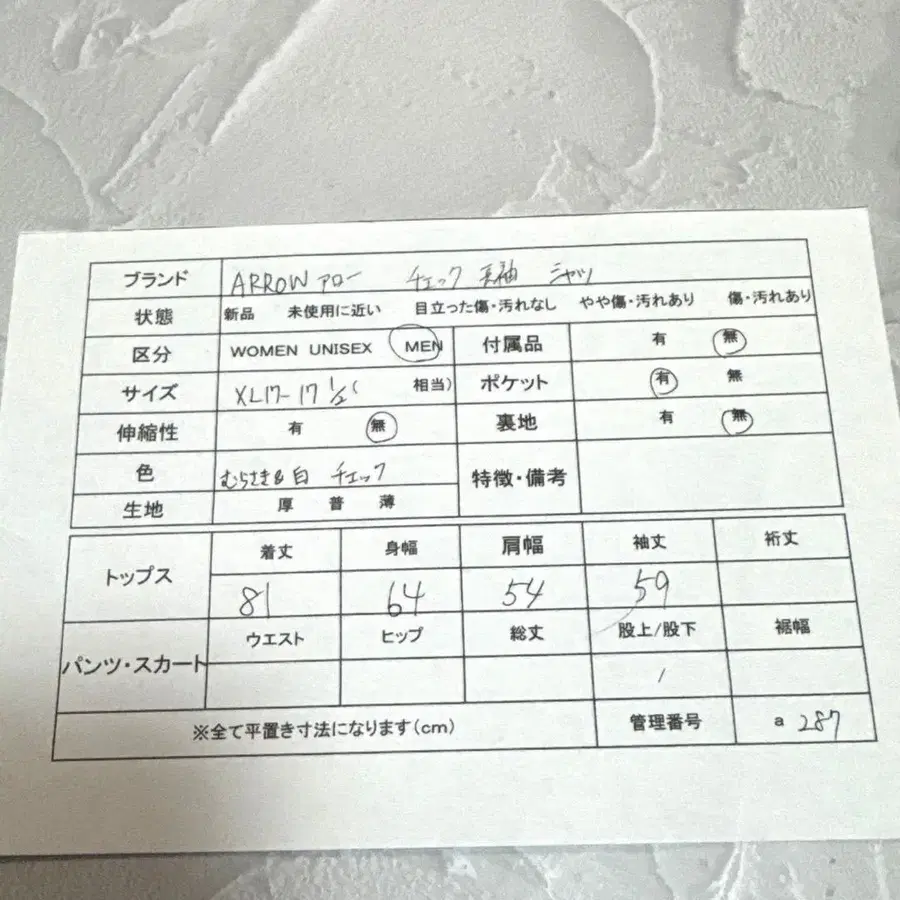 ブランド ARROW アロー チェック 長袖 シャツ
状態 新品 未使用に近い 目立った傷・汚れなし やや傷・汚れあり 傷・汚れあり
区分 WOMEN UNISEX MEN 付属品 有 無
サイズ XL17-17 1/2( 相当) ポケット 有 無
伸縮性 有 無 裏地 有 無
色 むらさき&白 チェック 特徴・備考
生地 厚 普 薄
トップス 着丈 身幅 肩幅 袖丈 裄丈
81 64 54 59
パンツ・スカート ウエスト ヒップ 総丈 股上/股下 裾幅
/
※全て平置き寸法になります(cm) 管理番号 a 287